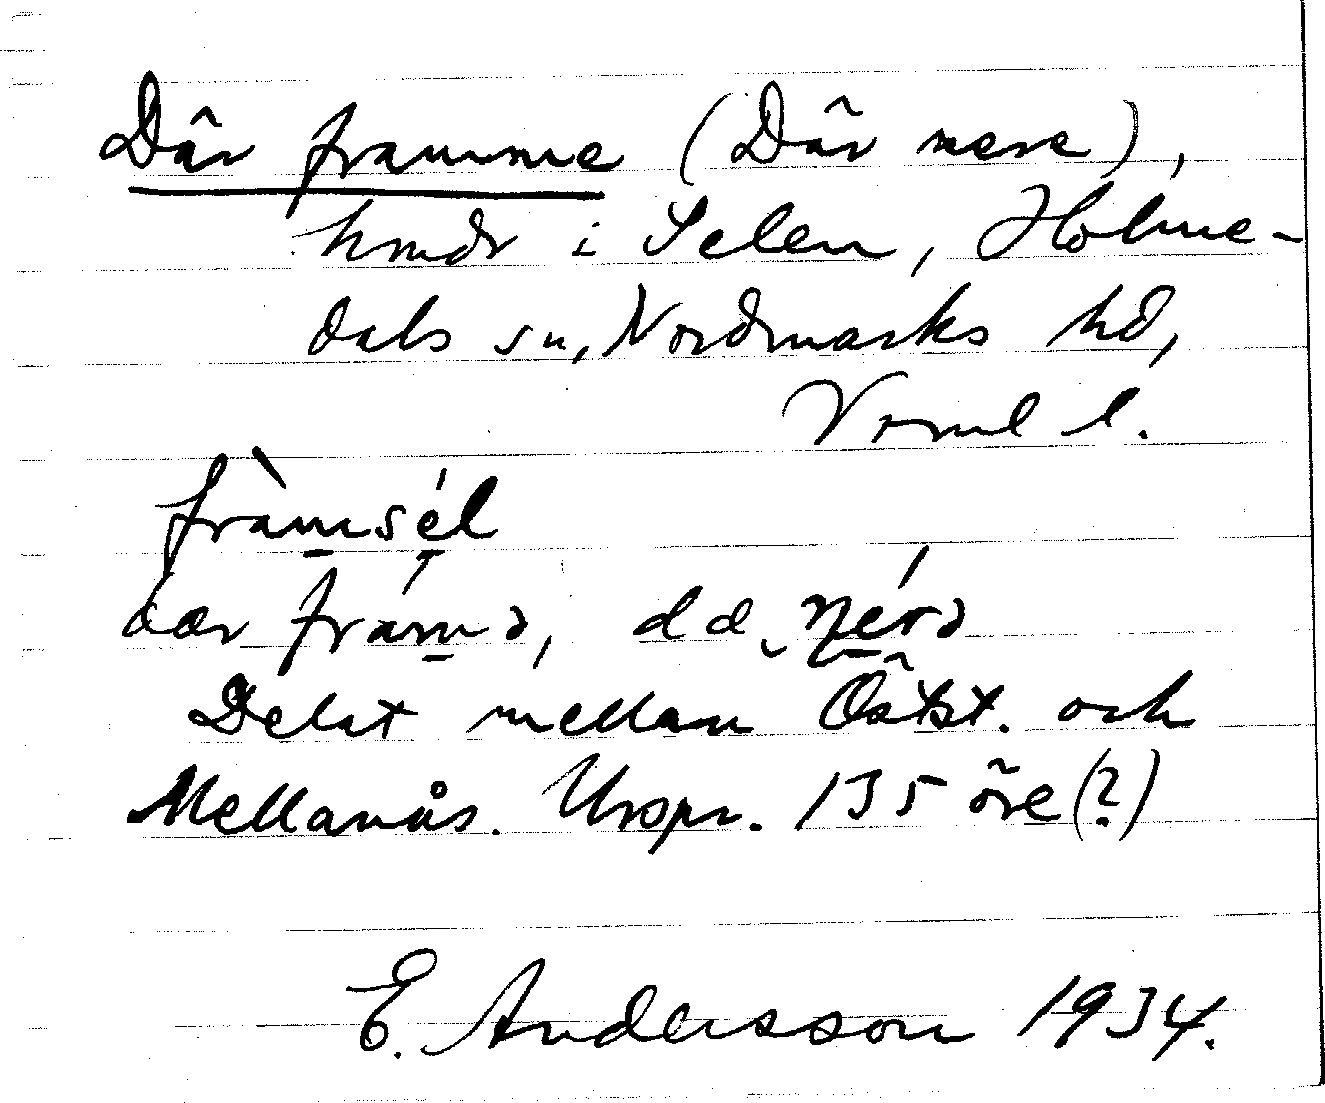 Där framme (Där nere),
hmdr i Selen, Holme-
dals sn, Nordmarks hd,
Vrml l.
fràmsél
framə, nérə
Delat mellan Östst. och
Mellanås. Urspr. 135 öre(?)
E. Andersson 1934.